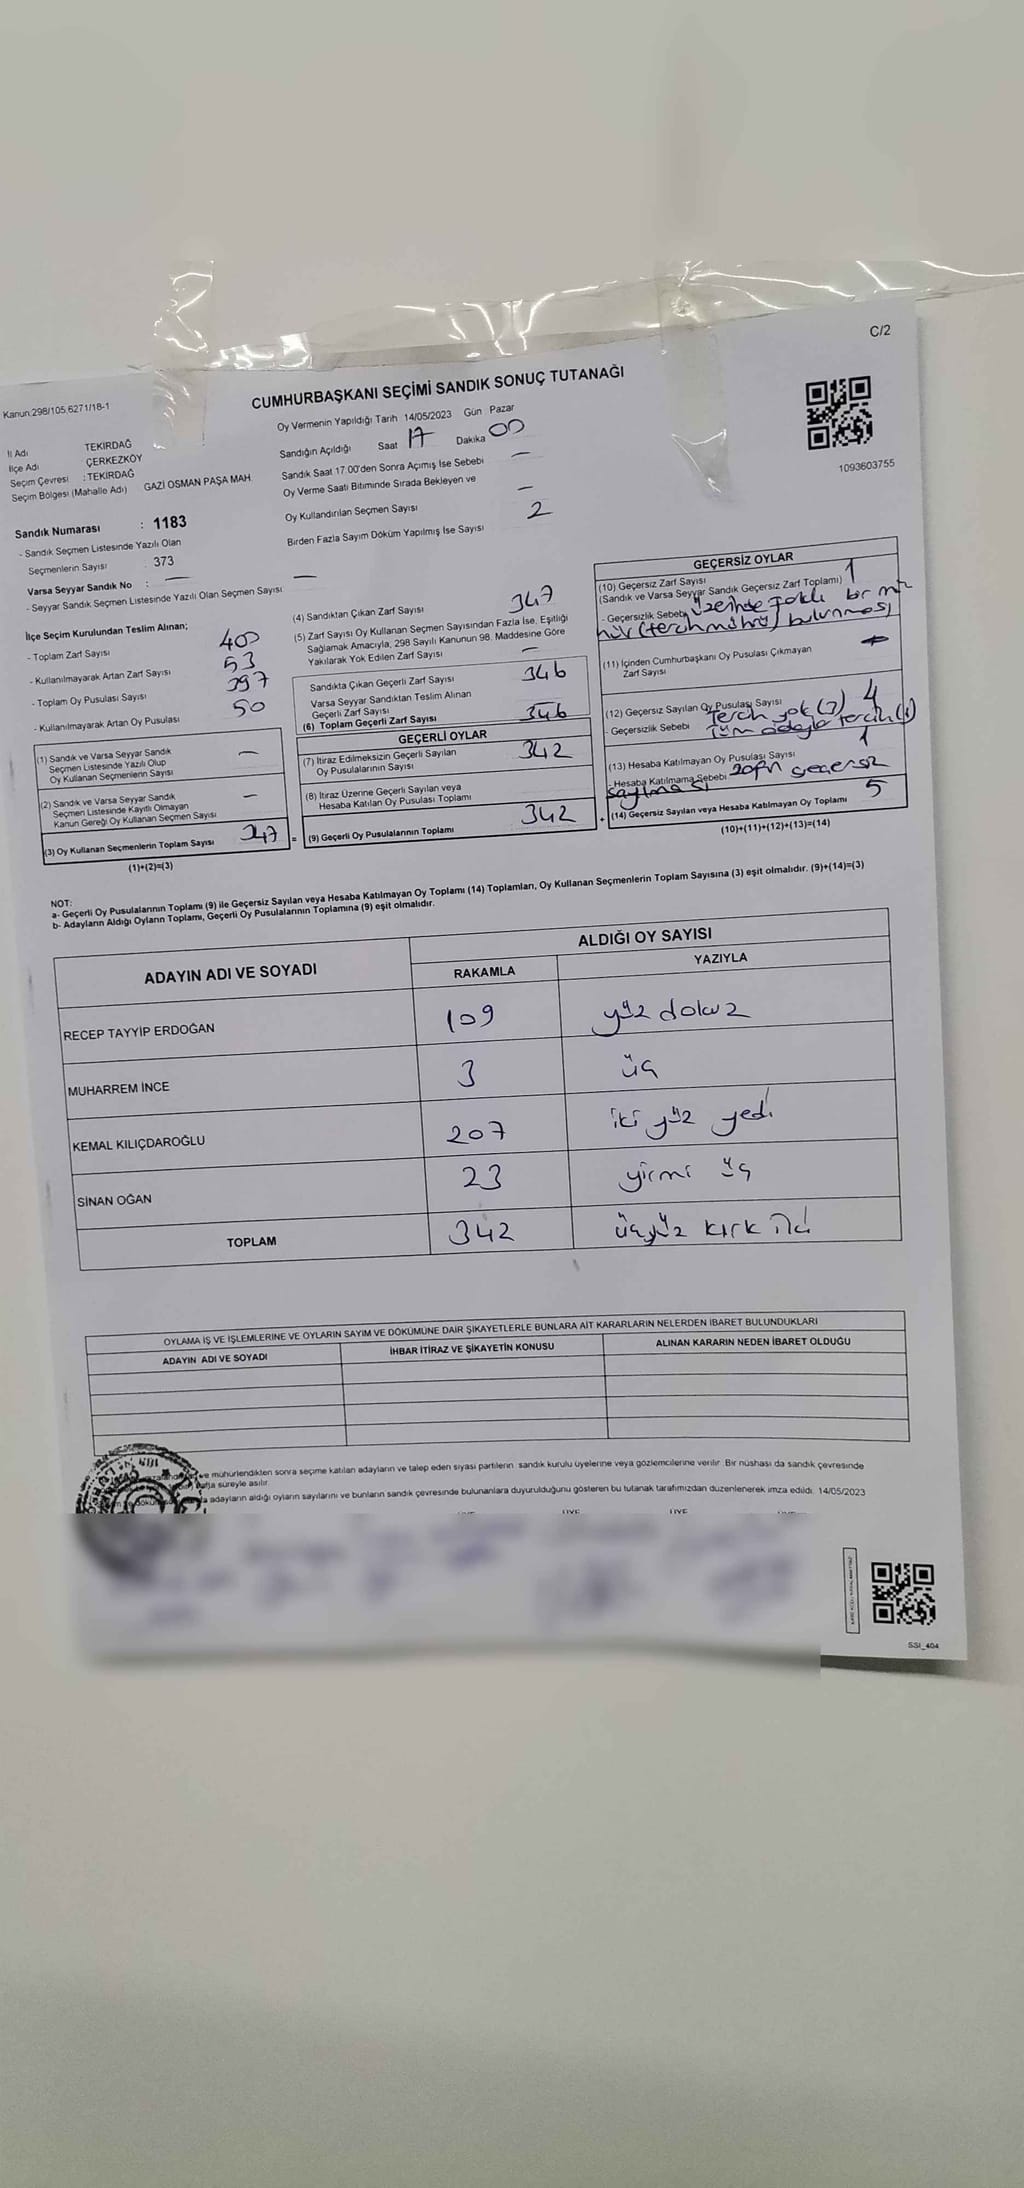 C/2
Kanun:298/105.6271/18-1
CUMHURBAŞKANI SEÇİMİ SANDIK SONUÇ TUTANAĞI
1093603755
İl Adı TEKİRDAĞ
İlçe Adı ÇERKEZKÖY
Seçim Çevresi : TEKİRDAĞ
Seçim Bölgesi (Mahalle Adı) GAZİ OSMAN PAŞA MAH.
Sandık Numarası : 1183
- Sandık Seçmen Listesinde Yazılı Olan
Seçmenlerin Sayısı : 373
Varsa Seyyar Sandık No : —
- Seyyar Sandık Seçmen Listesinde Yazılı Olan Seçmen Sayısı —
İlçe Seçim Kurulundan Teslim Alınan;
- Toplam Zarf Sayısı 400
- Kullanılmayarak Artan Zarf Sayısı 53
- Toplam Oy Pusulası Sayısı 397
- Kullanılmayarak Artan Oy Pusulası 50
(1) Sandık ve Varsa Seyyar Sandık
Seçmen Listesinde Yazılı Olup
Oy Kullanan Seçmenlerin Sayısı —
(2) Sandık ve Varsa Seyyar Sandık
Seçmen Listesinde Kayıtlı Olmayan
Kanun Gereği Oy Kullanan Seçmen Sayısı —
(3) Oy Kullanan Seçmenlerin Toplam Sayısı 347 =
(1)+(2)=(3)
Oy Vermenin Yapıldığı Tarih 14/05/2023 Gün Pazar
Sandığın Açıldığı Saat 17 Dakika 00
Sandık Saat 17:00'den Sonra Açılmış İse Sebebi —
Oy Verme Saati Bitiminde Sırada Bekleyen ve
Oy Kullandırılan Seçmen Sayısı —
Birden Fazla Sayım Döküm Yapılmış İse Sayısı 2
(4) Sandıktan Çıkan Zarf Sayısı 347
(5) Zarf Sayısı Oy Kullanan Seçmen Sayısından Fazla İse, Eşitliği
Sağlamak Amacıyla, 298 Sayılı Kanunun 98. Maddesine Göre
Yakılarak Yok Edilen Zarf Sayısı —
Sandıkta Çıkan Geçerli Zarf Sayısı 346
Varsa Seyyar Sandıktan Teslim Alınan
Geçerli Zarf Sayısı —
(6) Toplam Geçerli Zarf Sayısı 346
GEÇERLİ OYLAR
(7) İtiraz Edilmeksizin Geçerli Sayılan
Oy Pusulalarının Sayısı 342
(8) İtiraz Üzerine Geçerli Sayılan veya
Hesaba Katılan Oy Pusulası Toplamı —
(9) Geçerli Oy Pusulalarının Toplamı 342 +
GEÇERSİZ OYLAR
(10) Geçersiz Zarf Sayısı
(Sandık ve Varsa Seyyar Sandık Geçersiz Zarf Toplamı) 1
- Geçersizlik Sebebi üzerinde farklı bir mü
hür (tercih mührü) bulunması
(11) İçinden Cumhurbaşkanı Oy Pusulası Çıkmayan
Zarf Sayısı
(12) Geçersiz Sayılan Oy Pusulası Sayısı 4
- Geçersizlik Sebebi Tercih yok
Tüm adaylar tercih (1)
(13) Hesaba Katılmayan Oy Pusulası Sayısı 1
- Hesaba Katılmama Sebebi zarfın geçersiz
sayılması
(14) Geçersiz Sayılan veya Hesaba Katılmayan Oy Toplamı 5
(10)+(11)+(12)+(13)=(14)
NOT:
a- Geçerli Oy Pusulalarının Toplamı (9) ile Geçersiz Sayılan veya Hesaba Katılmayan Oy Toplamı (14) Toplamları, Oy Kullanan Seçmenlerin Toplam Sayısına (3) eşit olmalıdır. (9)+(14)=(3)
b- Adayların Aldığı Oyların Toplamı, Geçerli Oy Pusulalarının Toplamına (9) eşit olmalıdır.
ADAYIN ADI VE SOYADI ALDIĞI OY SAYISI
RAKAMLA YAZIYLA
RECEP TAYYİP ERDOĞAN 109 yüz dokuz
MUHARREM İNCE 3 üç
KEMAL KILIÇDAROĞLU 207 iki yüz yedi
SİNAN OĞAN 23 yirmi üç
TOPLAM 342 üçyüz kırk iki
OYLAMA İŞ VE İŞLEMLERİNE VE OYLARIN SAYIM VE DÖKÜMÜNE DAİR ŞİKAYETLERLE BUNLARA AİT KARARLARIN NELERDEN İBARET BULUNDUKLARI
ADAYIN ADI VE SOYADI İHBAR İTİRAZ VE ŞİKAYETİN KONUSU ALINAN KARARIN NEDEN İBARET OLDUĞU
ve mühürlendikten sonra seçime katılan adayların ve talep eden siyasi partilerin sandık kurulu üyelerine veya gözlemcilerine verilir. Bir nüshası da sandık çevresinde
hafta süreyle asılır.
adayların aldığı oyların sayılarını ve bunların sandık çevresinde bulunanlara duyurulduğunu gösteren bu tutanak tarafımızdan düzenlenerek imza edildi. 14/05/2023
ÜYE ÜYE
SSI_404